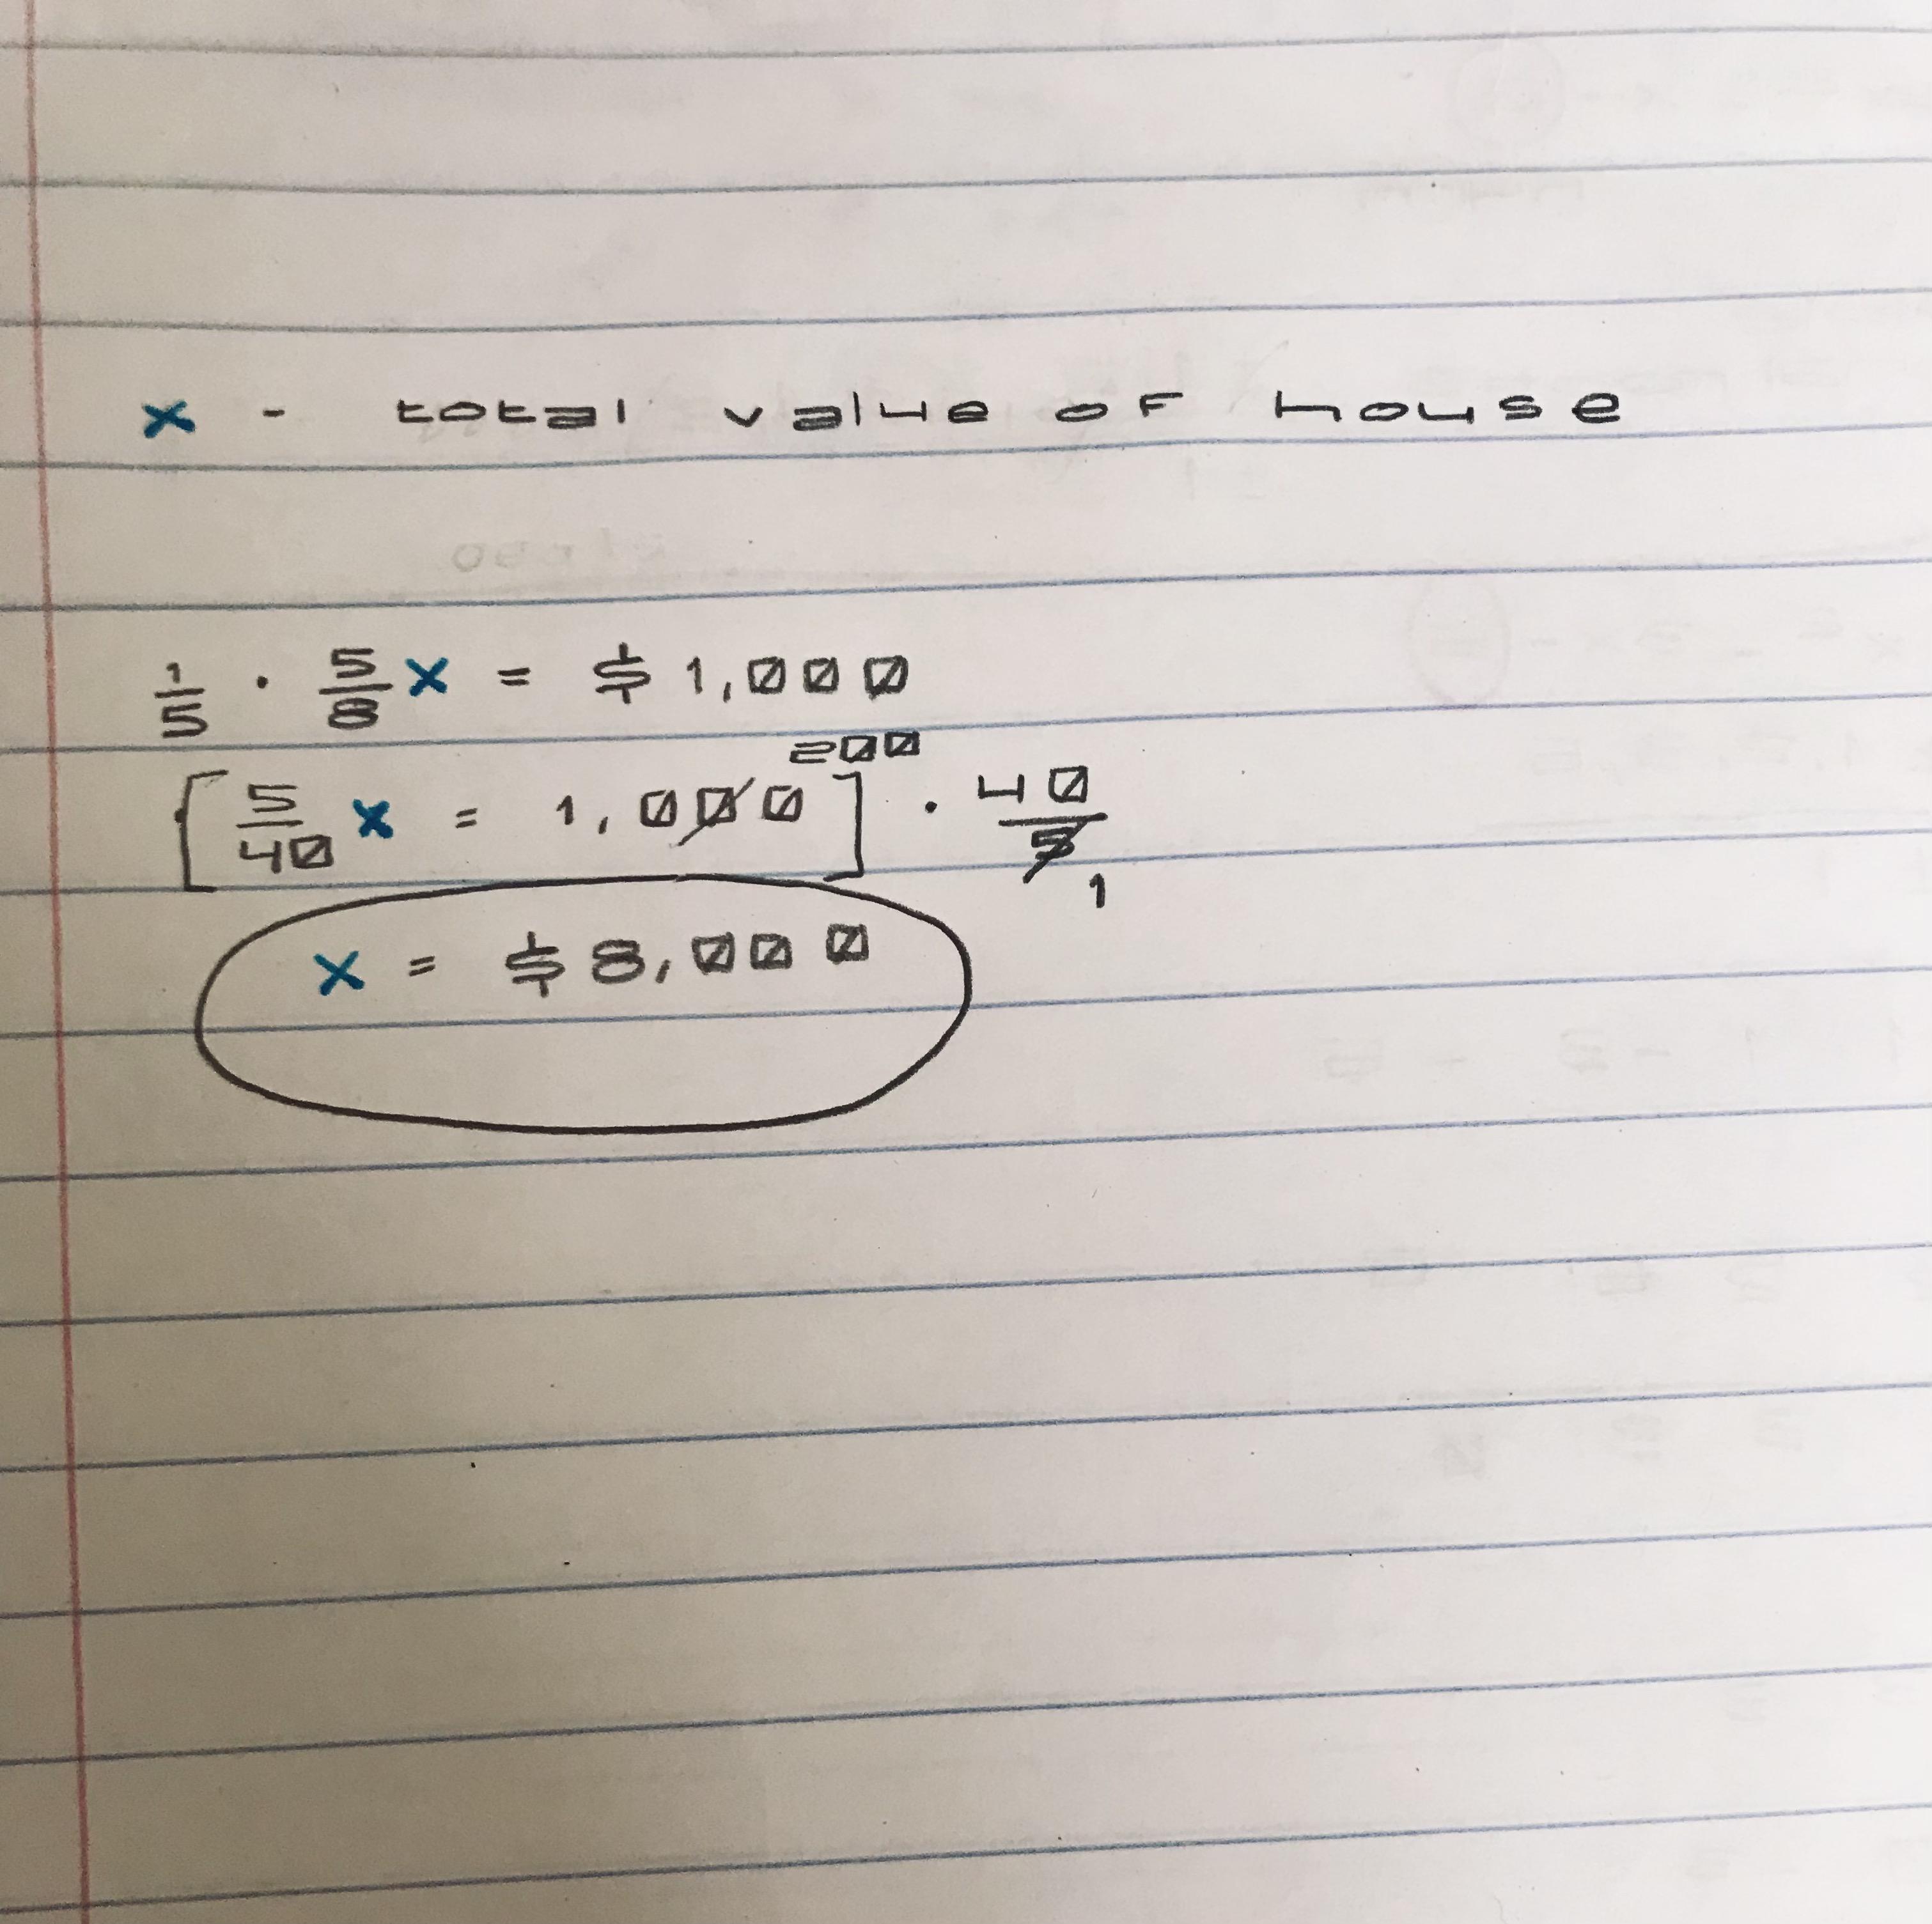 x - total value of house
1/5 · 5/8 x = $1,000
200
[5/40 x = 1,000] · 40/5
1
x = $8,000